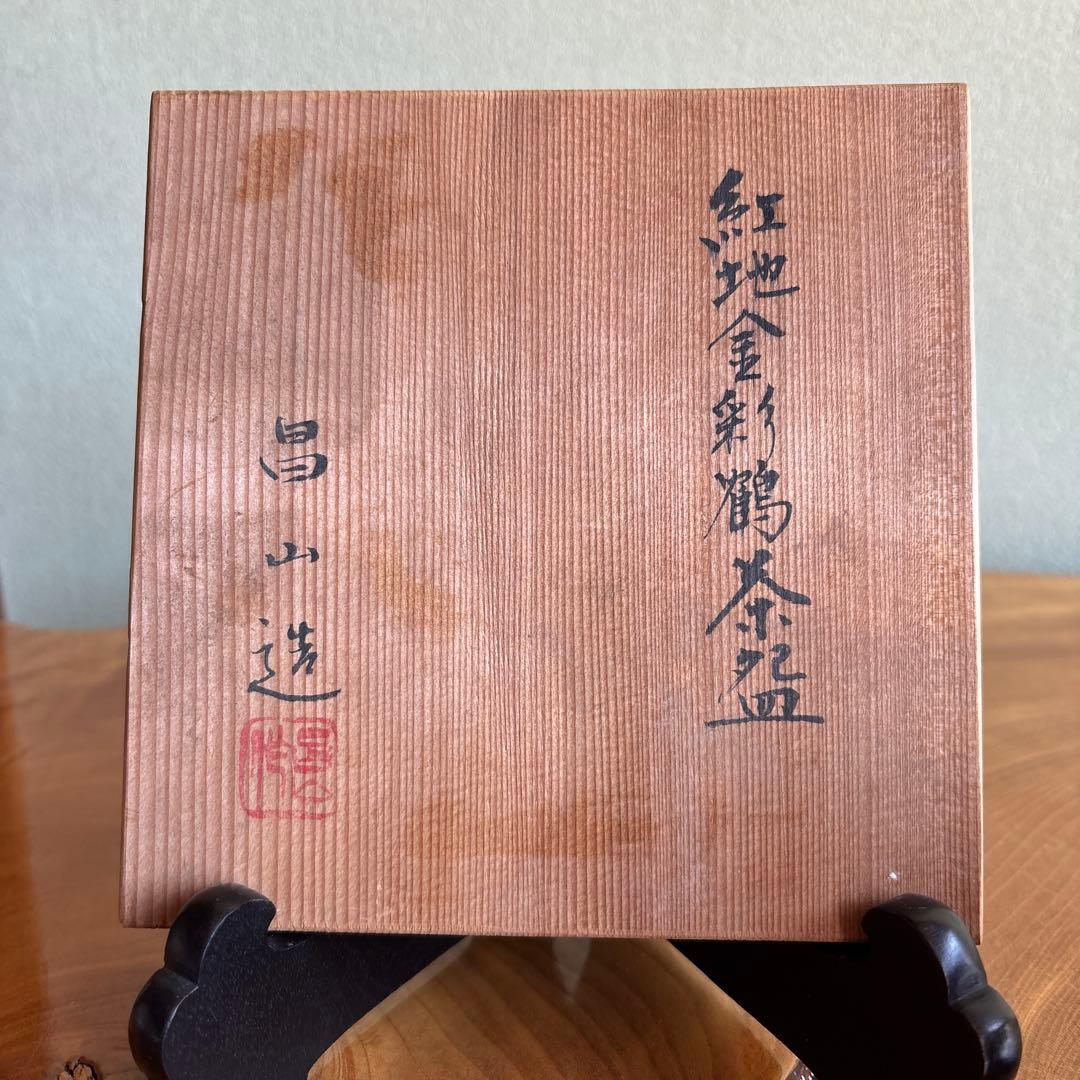 紅地金彩鶴茶盌
昌山造